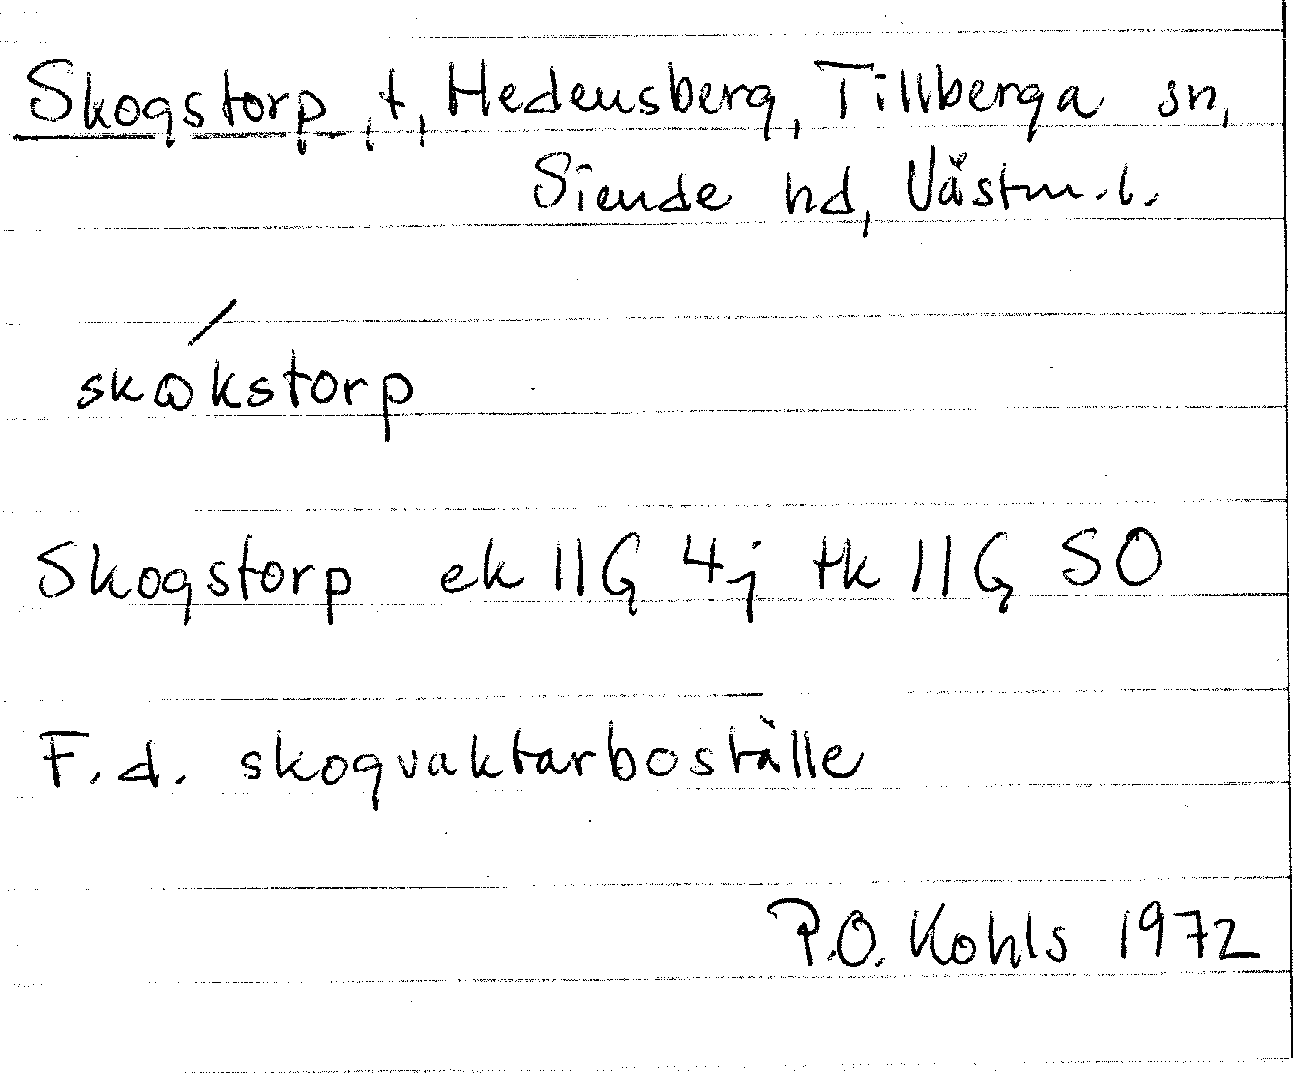 Skogstorp, t, Hedensberg, Tillberga sn,
Siende hd, Västm. l.
skɷ́kstorp
Skogstorp ek 11G 4j tk 11G SO
F.d. skogvaktarboställe
P.O. Kohls 1972